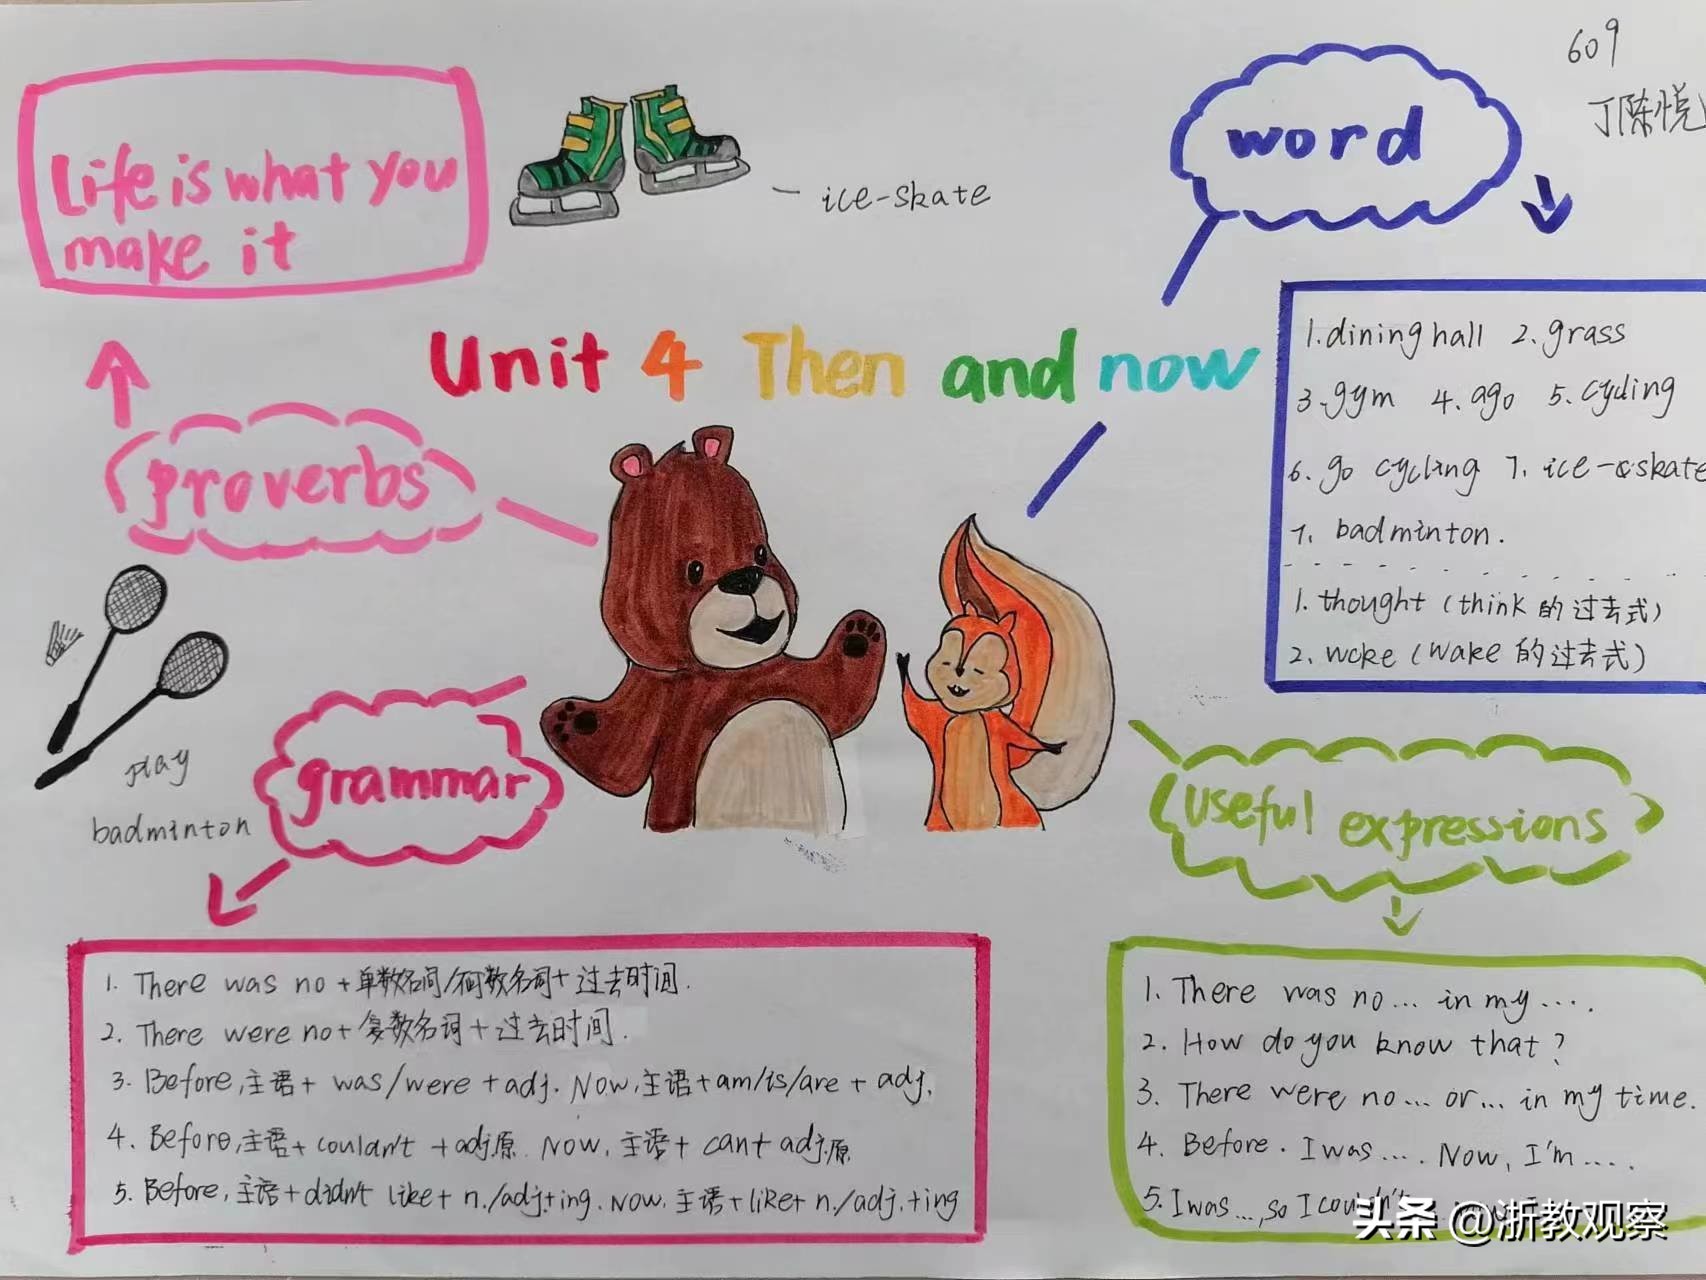 609
丁陈悦
Life is what you
make it
ice-skate
word
Unit 4 Then and now
1.dining hall 2.grass
3.gym 4.ago 5.cycling
6.go cycling 7.ice-skate
7. badminton.
1. thought (think 的过去式)
2. woke (wake 的过去式)
proverbs
play
badminton
grammar
useful expressions
1. There was no+单数名词/不可数名词+过去时间.
2. There were no+复数名词+过去时间.
3. Before,主语+ was/were +adj. Now,主语+am/is/are + adj.
4. Before,主语+couldn't +adj.原. Now,主语+ can+ adj.原
5. Before,主语+didn't like+ n./adj.+ing. Now,主语+like+ n./adj.+ing
1. There was no... in my....
2. How do you know that?
3. There were no... or... in my time.
4. Before. I was.... Now, I'm....
5. I was...,so I couldn't
头条 @浙教观察